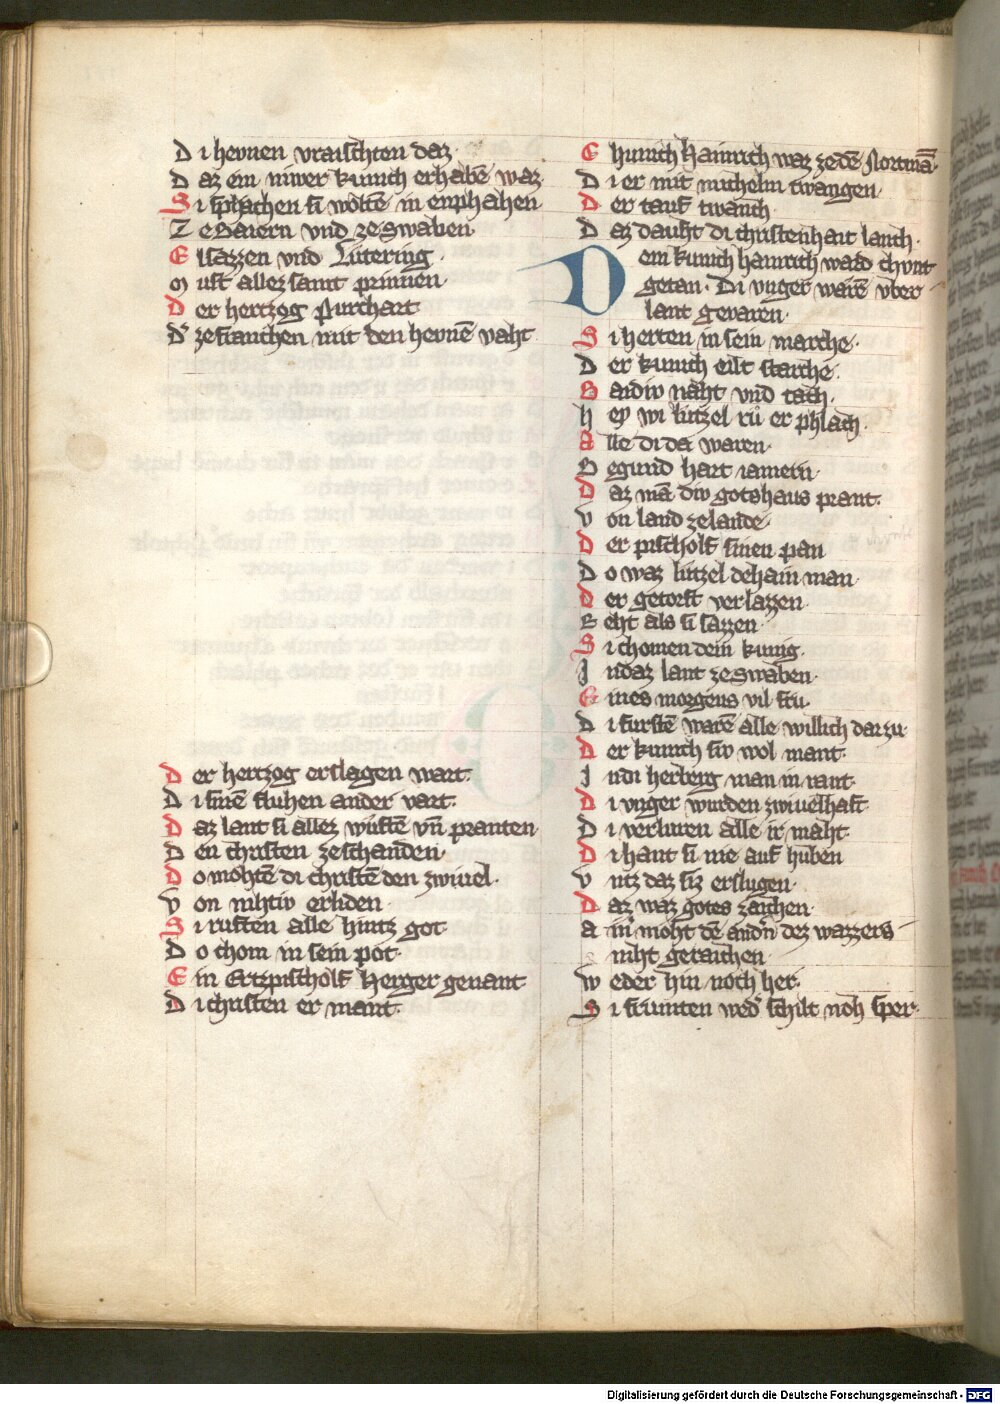 Di hevnen vraischten daz.
Daz ein niwer kunich erhabē waz
Si sprachen si woltē in enphahen
Ze Baiern vnd ze Swaben
Elsazzen vnd Lutering.
Must allez samt prinnen
Der hertzog Purchart
Dˢ ze franchen mit den hevnē vaht
Der hertzog erslagen wart.
Di sinē fluhen ander vart.
Daz lant si allez wustē vn̄ pranten
Den christen ze schanden.
Do mohtē di christē den zwiuel.
Von nihtiv erliden
Si ruften alle hintz got
Do chom in sein pot.
Ein Ertzpischolf Herger genant
Di christen er mant.
Chunich Hainrich waz ze dē Nortmā̄
Di er mit michelm twangen
Der tauf twanch
Daz dauht di christenhait lanch.
Dem kunich hainrich ward chunt
getan. Di vnger warē vber
lant gevaren.
Si herten in sein marche.
Der kunich eilt starche.
Baidiv naht vnd tach.
Hey wi lutzel rů er phlach
Alle di da waren.
Begund hart iamern.
Daz mā div gotshaus prant.
Von land ze lande.
Der pischolf sinen pan
Do waz lutzel dehain man
Der getorst verlazzen.
Reht als si sazzen.
Si chomen dem kunig.
In daz lant ze Swaben.
Eines morgens vil fru.
Di furstē warē alle willich dar zu
Der kunich siv wol mant.
In di herberg man in rant.
Di vnger wurden zwiuelhaft
Di verluren alle ir maht
Di hant si nie auf huben
Vntz daz siz erslugen.
Daz waz gotes zaichen.
Ainˢ moht dē andˢn dez wazzers
niht geraichen
Weder hin noch her.
Si frumten wedˢ schilt noh sper.
Digitalisierung gefördert durch die Deutsche Forschungsgemeinschaft - DFG